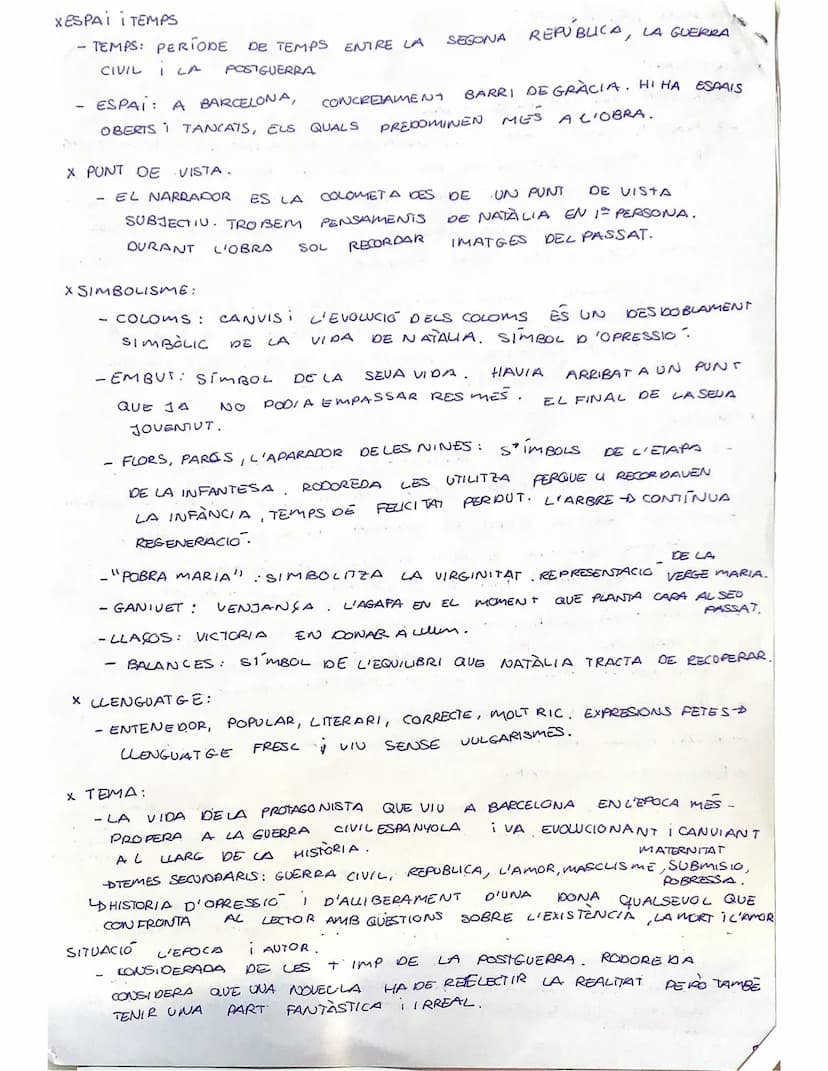 x ESPAI i TEMPS
- TEMPS: PERÍODE DE TEMPS ENTRE LA SEGONA REPÚBLICA, LA GUERRA
CIVIL i LA POSTGUERRA
- ESPAI: A BARCELONA, CONCRETAMENT BARRI DE GRÀCIA. HI HA ESPAIS
OBERTS i TANCATS, ELS QUALS PREDOMINEN MÉS A L'OBRA.
x PUNT DE VISTA.
- EL NARRADOR ES LA COLOMETA DES DE UN PUNT DE VISTA
SUBJECTIU. TROBEM PENSAMENTS DE NATÀLIA EN 1ª PERSONA.
DURANT L'OBRA SOL RECORDAR IMATGES DEL PASSAT.
x SIMBOLISME:
- COLOMS: CANVIS i L'EVOLUCIÓ DELS COLOMS ÉS UN DESDOBLAMENT
SIMBÒLIC DE LA VIDA DE NATÀLIA. SÍMBOL D'OPRESSIÓ.
- EMBUT: SÍMBOL DE LA SEUA VIDA. HAVIA ARRIBAT A UN PUNT
QUE JA NO PODIA EMPASSAR RES MÉS. EL FINAL DE LA SEUA
JOVENTUT.
- FLORS, PARCS, L'APARADOR DE LES NINES: SÍMBOLS DE L'ETAPA
DE LA INFANTESA. RODOREDA LES UTILITZA PERQUE LI RECORDAVEN
LA INFÀNCIA, TEMPS DE FELICITAT PERDUT. L'ARBRE → CONTÍNUA
REGENERACIÓ.
- "POBRA MARIA": SIMBOLITZA LA VIRGINITAT. REPRESENTACIÓ DE LA
VERGE MARIA.
- GANIVET: VENJANÇA. L'AGAFA EN EL MOMENT QUE PLANTA CARA AL SEO
PASSAT.
- LLAÇOS: VICTORIA EN DONAR A LLUM.
- BALANCES: SÍMBOL DE L'EQUILIBRI QUE NATÀLIA TRACTA DE RECOPERAR.
x LLENGUATGE:
- ENTENEDOR, POPULAR, LITERARI, CORRECTE, MOLT RIC. EXPRESIONS FETES →
LLENGUATGE FRESC i VIU SENSE VULGARISMES.
x TEMA:
- LA VIDA DE LA PROTAGONISTA QUE VIU A BARCELONA EN L'EPOCA MÉS
PROPERA A LA GUERRA CIVIL ESPANYOLA i VA EVOLUCIONANT i CANVIANT
AL LLARG DE LA HISTÒRIA.
→ TEMES SECUNDARIS: GUERRA CIVIL, REPUBLICA, L'AMOR, MASCLISME, MATERNITAT, SUBMISIO,
POBRESSA.
↳ HISTORIA D'OPRESSIÓ i D'ALLIBERAMENT D'UNA DONA QUALSEVOL QUE
CONFRONTA AL LECTOR AMB QÜESTIONS SOBRE L'EXISTÈNCIA, LA MORT i L'AMOR
SITUACIÓ L'EPOCA i AUTOR.
- CONSIDERADA DE LES + IMP DE LA POSTGUERRA. RODOREDA
CONSIDERA QUE UNA NOVEL·LA HA DE REFLECTIR LA REALITAT PERÒ TAMBÉ
TENIR UNA PART FANTÀSTICA i IRREAL.